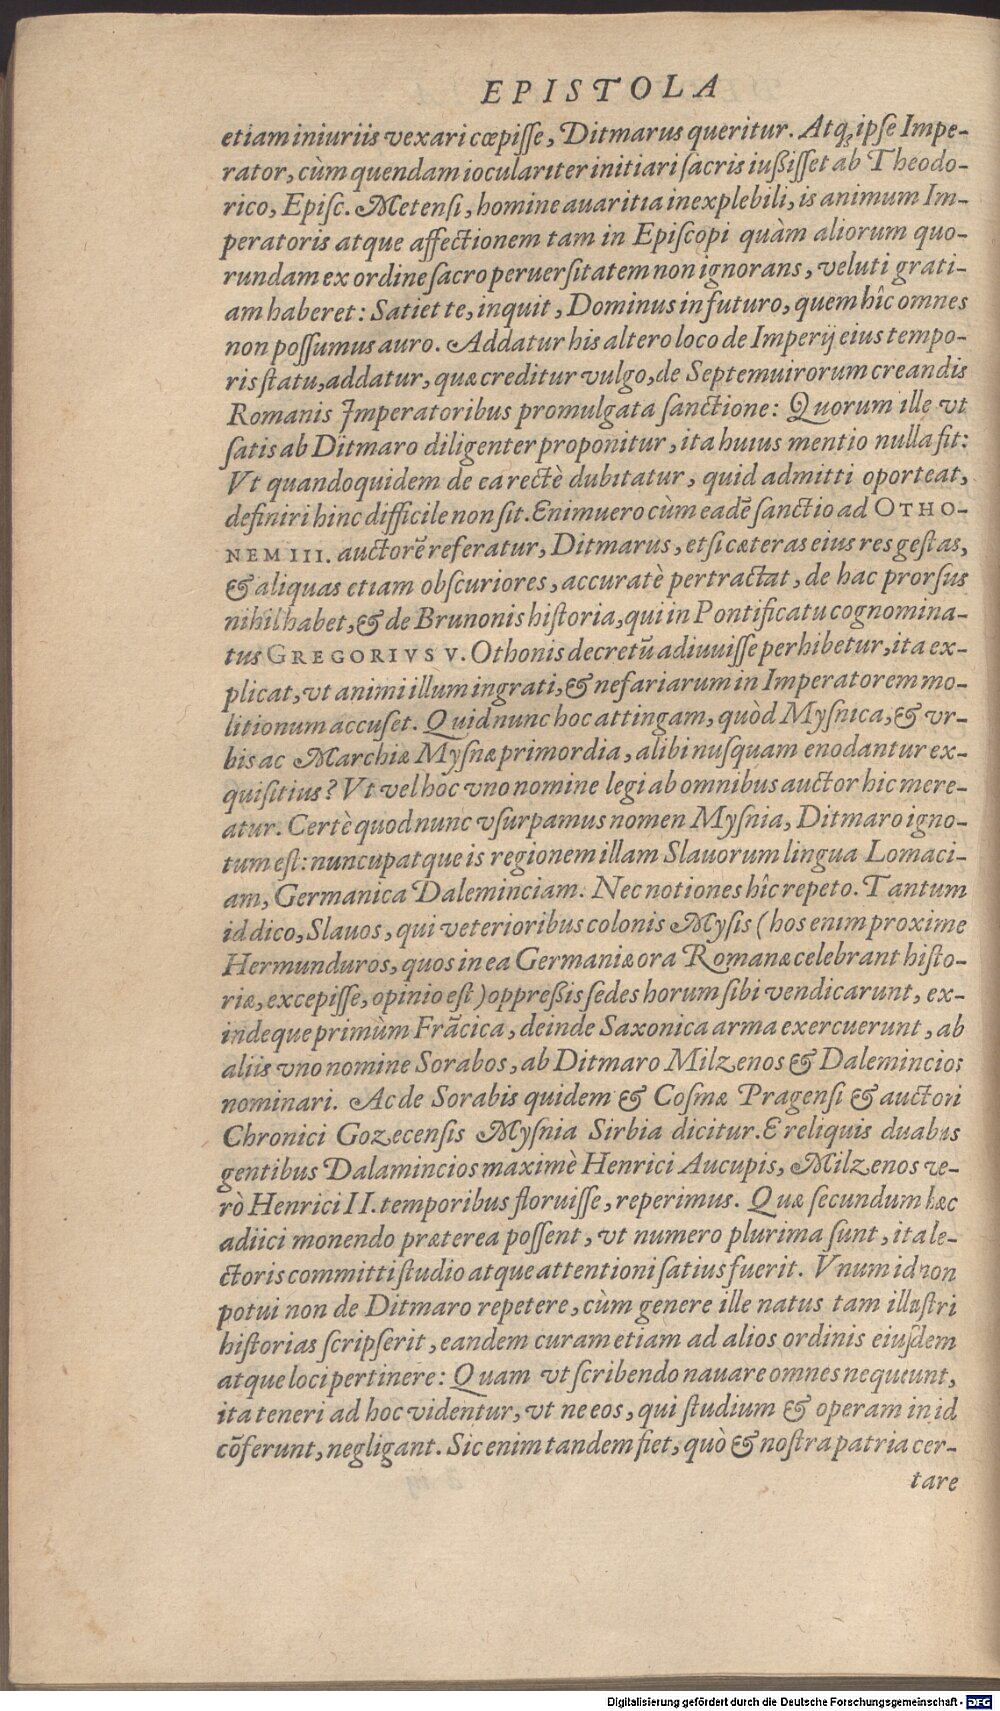 EPISTOLA
etiam iniuriis vexari cœpisse, Ditmarus queritur. Atq; ipse Impe-
rator, cùm quendam iocularıter initiari sacris iußisset ab Theodo-
rico, Episc. Metensi, homine auaritia inexplebili, is animum Im-
peratoris atque affectionem tam in Episcopi quàm aliorum quo-
rundam ex ordine sacro peruersitatem non ignorans, veluti grati-
am haberet: Satiet te, inquit, Dominus in futuro, quem hîc omnes
non possumus auro. Addatur his altero loco de Imperij eius tempo-
ris statu, addatur, quæ creditur vulgo, de Septemuirorum creandis
Romanis Imperatoribus promulgata sanctione: Quorum ille vt
satis ab Ditmaro diligenter proponitur, ita huius mentio nulla fit:
Vt quandoquidem de ea rectè dubıtatur, quid admitti oporteat,
definiri hinc difficile non sit. Enimuero cùm eadē sanctio ad OTHO-
NEM III. auctorē referatur, Ditmarus, etsi cæteras eius res gestas,
& aliquas etiam obscuriores, accuratè pertractat, de hac prorsus
nihil habet, & de Brunonis historia, qui in Pontificatu cognomina-
tus GREGORIVS V. Othonis decretū adiuuisse perhibetur, ita ex-
plicat, vt animi illum ingrati, & nefariarum in Imperatorem mo-
litionum accuset. Quid nunc hoc attingam, quòd Mysnica, & vr-
bis ac Marchiæ Mysnæ primordia, alibi nusquam enodantur ex-
quisitius? Vt vel hoc vno nomine legi ab omnibus auctor hic mere-
atur. Certè quod nunc vsurpamus nomen Mysnia, Ditmaro igno-
tum est: nuncupatque is regionem illam Slauorum lingua Lomaci-
am, Germanica Daleminciam. Nec notiones hîc repeto. Tantum
id dico, Slauos, qui veterioribus colonis Mysis (hos enim proxime
Hermunduros, quos in ea Germaniæ ora Romanæ celebrant histo-
riæ, excepisse, opinio est) oppreßis sedes horum sibi vendicarunt, ex-
indeque primùm Frācica, deinde Saxonica arma exercuerunt, ab
aliis vno nomine Sorabos, ab Ditmaro Milzenos & Dalemincios
nominari. Ac de Sorabis quidem & Cosmæ Pragensi & auctori
Chronici Gozecensis Mysnia Sirbia dicitur. E reliquis duabus
gentibus Dalamincios maximè Henrici Aucupis, Milzenos ve-
rò Henrici II. temporibus floruisse, reperimus. Quæ secundum hæc
adiici monendo præterea possent, vt numero plurima sunt, ita le-
ctoris committi studio atque attentioni satius fuerit. Vnum id non
potui non de Ditmaro repetere, cùm genere ille natus tam illustri
historias scripserit, eandem curam etiam ad alios ordinis eiusdem
atque loci pertinere: Quam vt scribendo nauare omnes nequeunt,
ita teneri ad hoc videntur, vt ne eos, qui studium & operam in id
cōferunt, negligant. Sic enim tandem fiet, quò & nostra patria cer-
tare
Digitalisierung gefördert durch die Deutsche Forschungsgemeinschaft - DFG